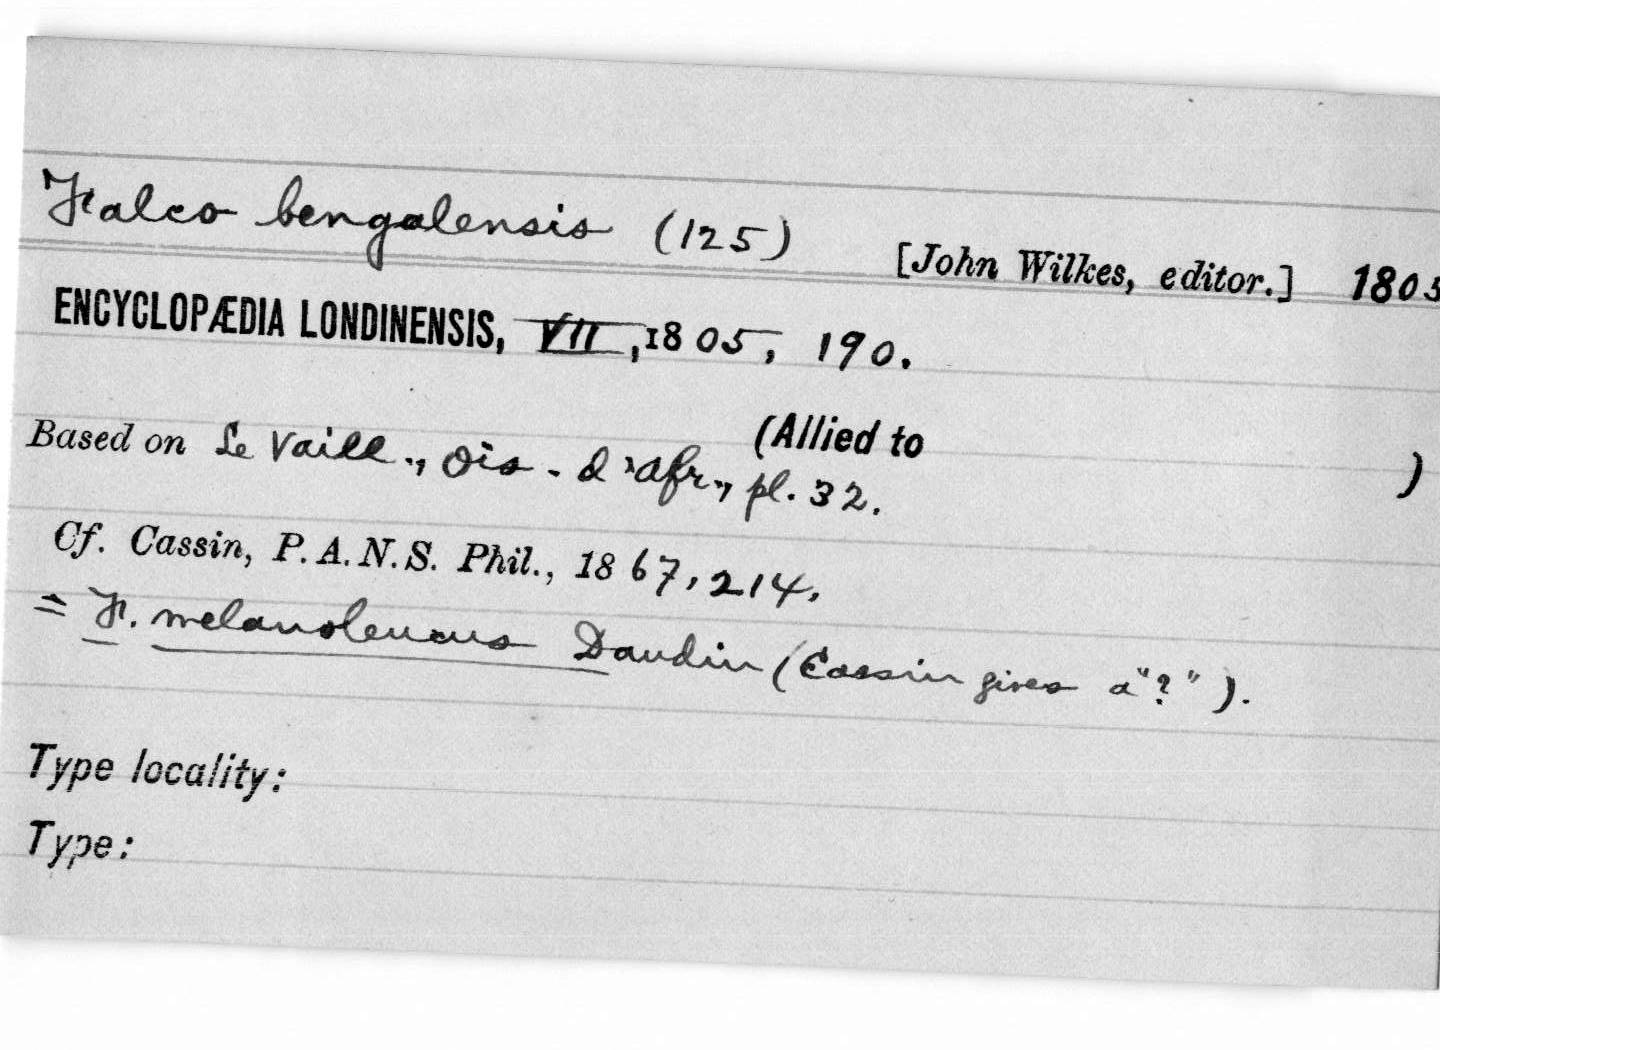 Falco bengalensis (125) [John Wilkes, editor.] 1805
ENCYCLOPÆDIA LONDINENSIS, VII, 1805, 190.
(Allied to )
Based on Le Vaill., Ois. d'Afr., pl. 32.
Cf. Cassin, P. A. N. S. Phil., 1867, 214.
= F. melanoleucus Daudin (Cassin gives a "?").
Type locality:
Type: